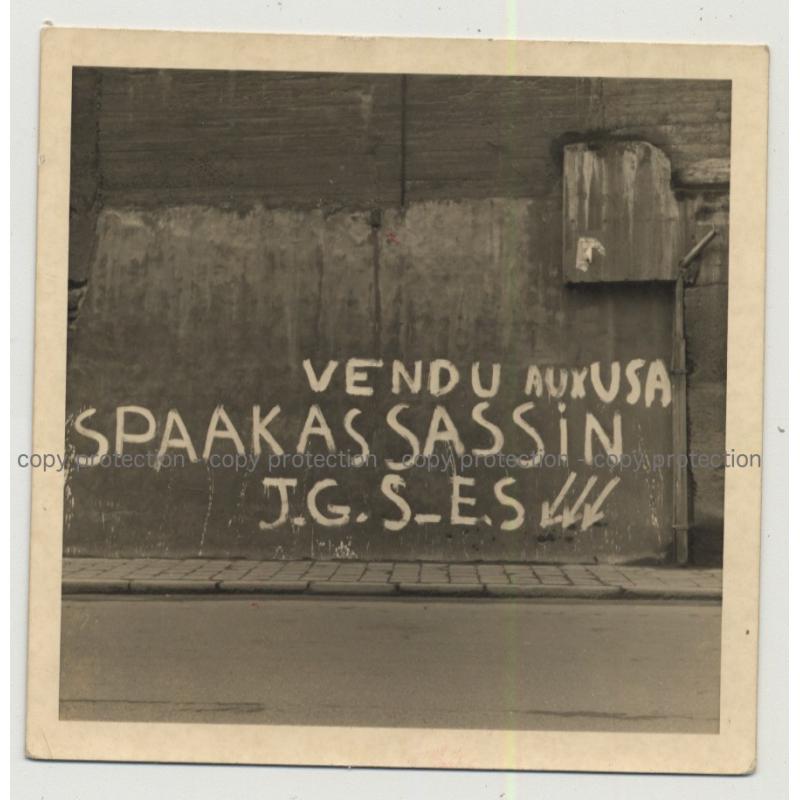 VENDU AUX USA
SPAAK ASSASSIN
J.G.S_E.S
copy protection - copy protection - copy protection - copy protection